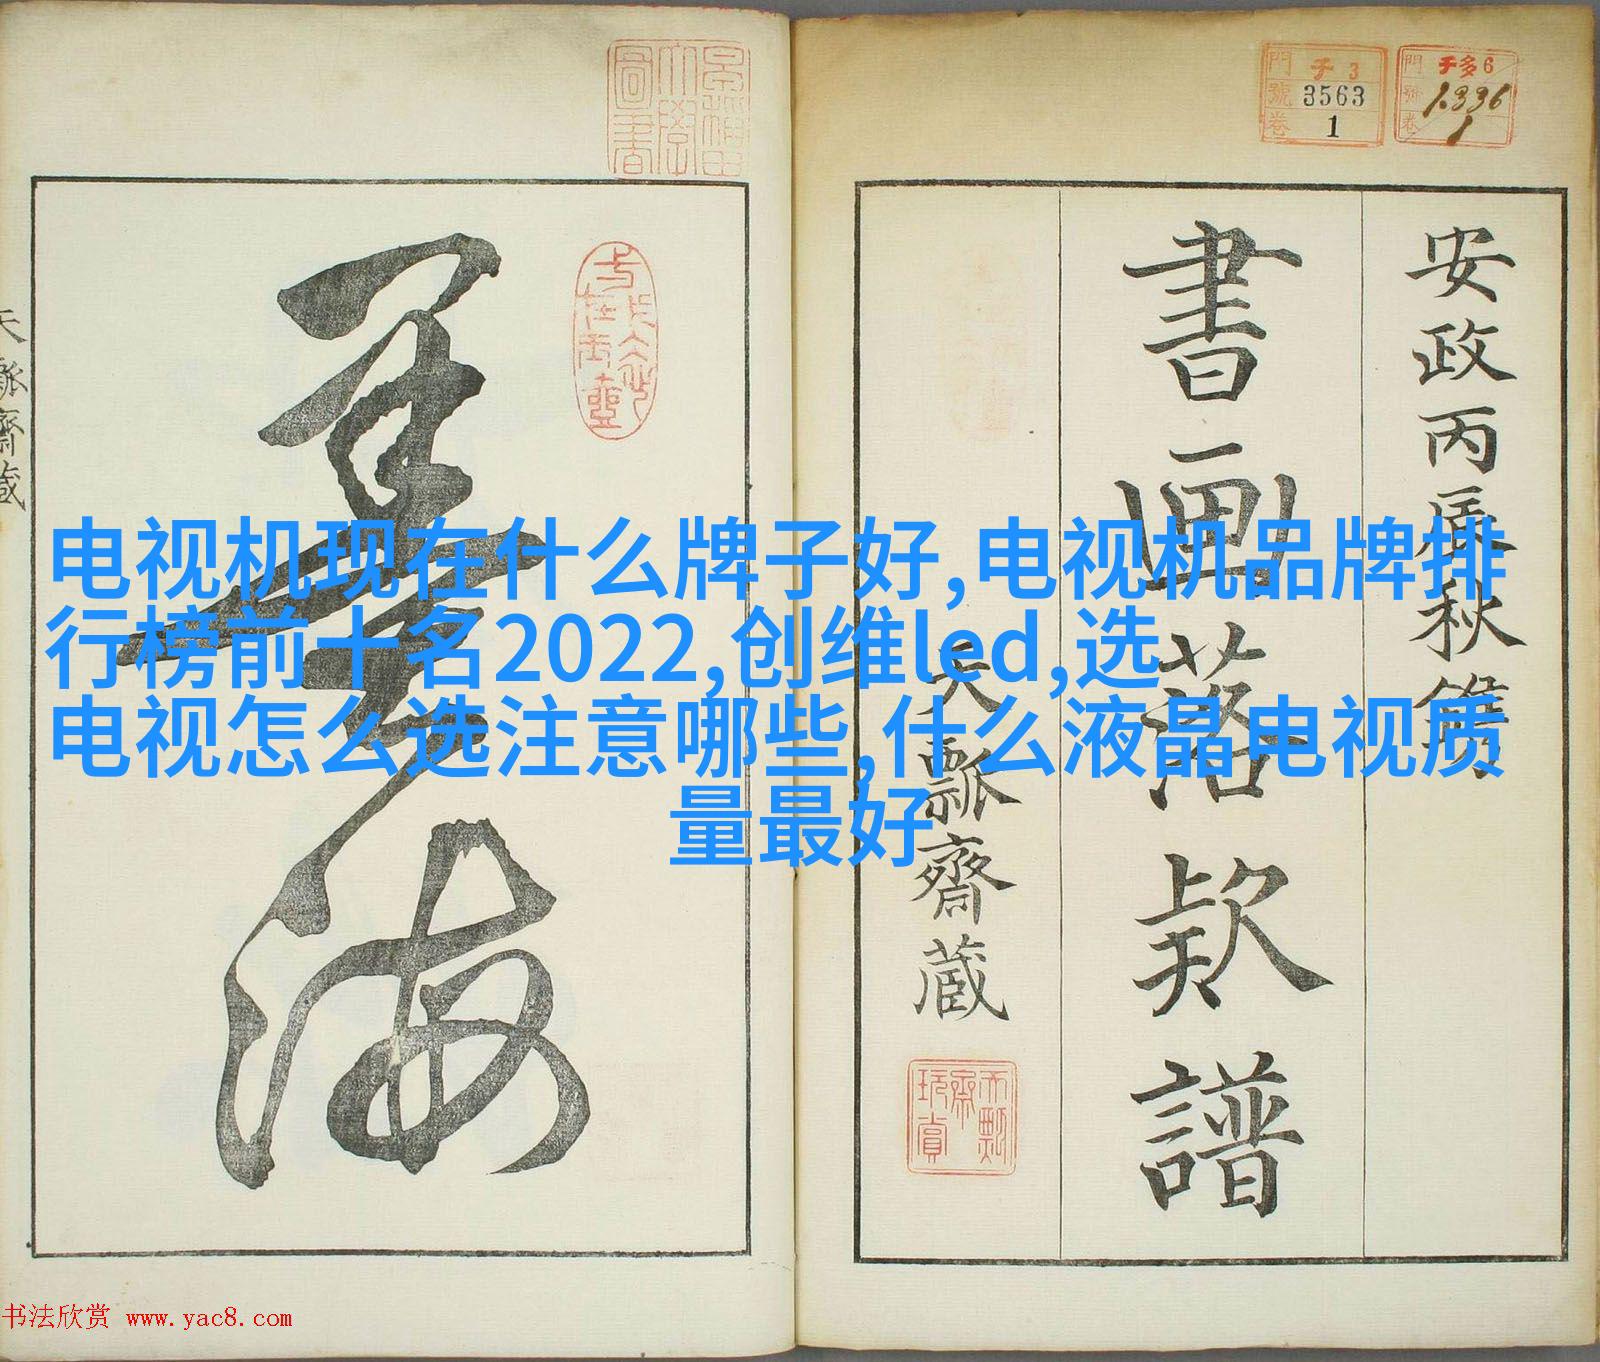 安政丙辰秋鐫
書画落欵譜
天瓢齋蔵
墨海
天瓢齋蔵
チ 3
3563
1
チ多6
1.336
1
門
號
卷
電视机现在什么牌子好,电视机品牌排
行榜前十名2022,创维led,选
电视怎么选注意哪些,什么液晶电视质
量最好
书法欣赏 www.yac8.com